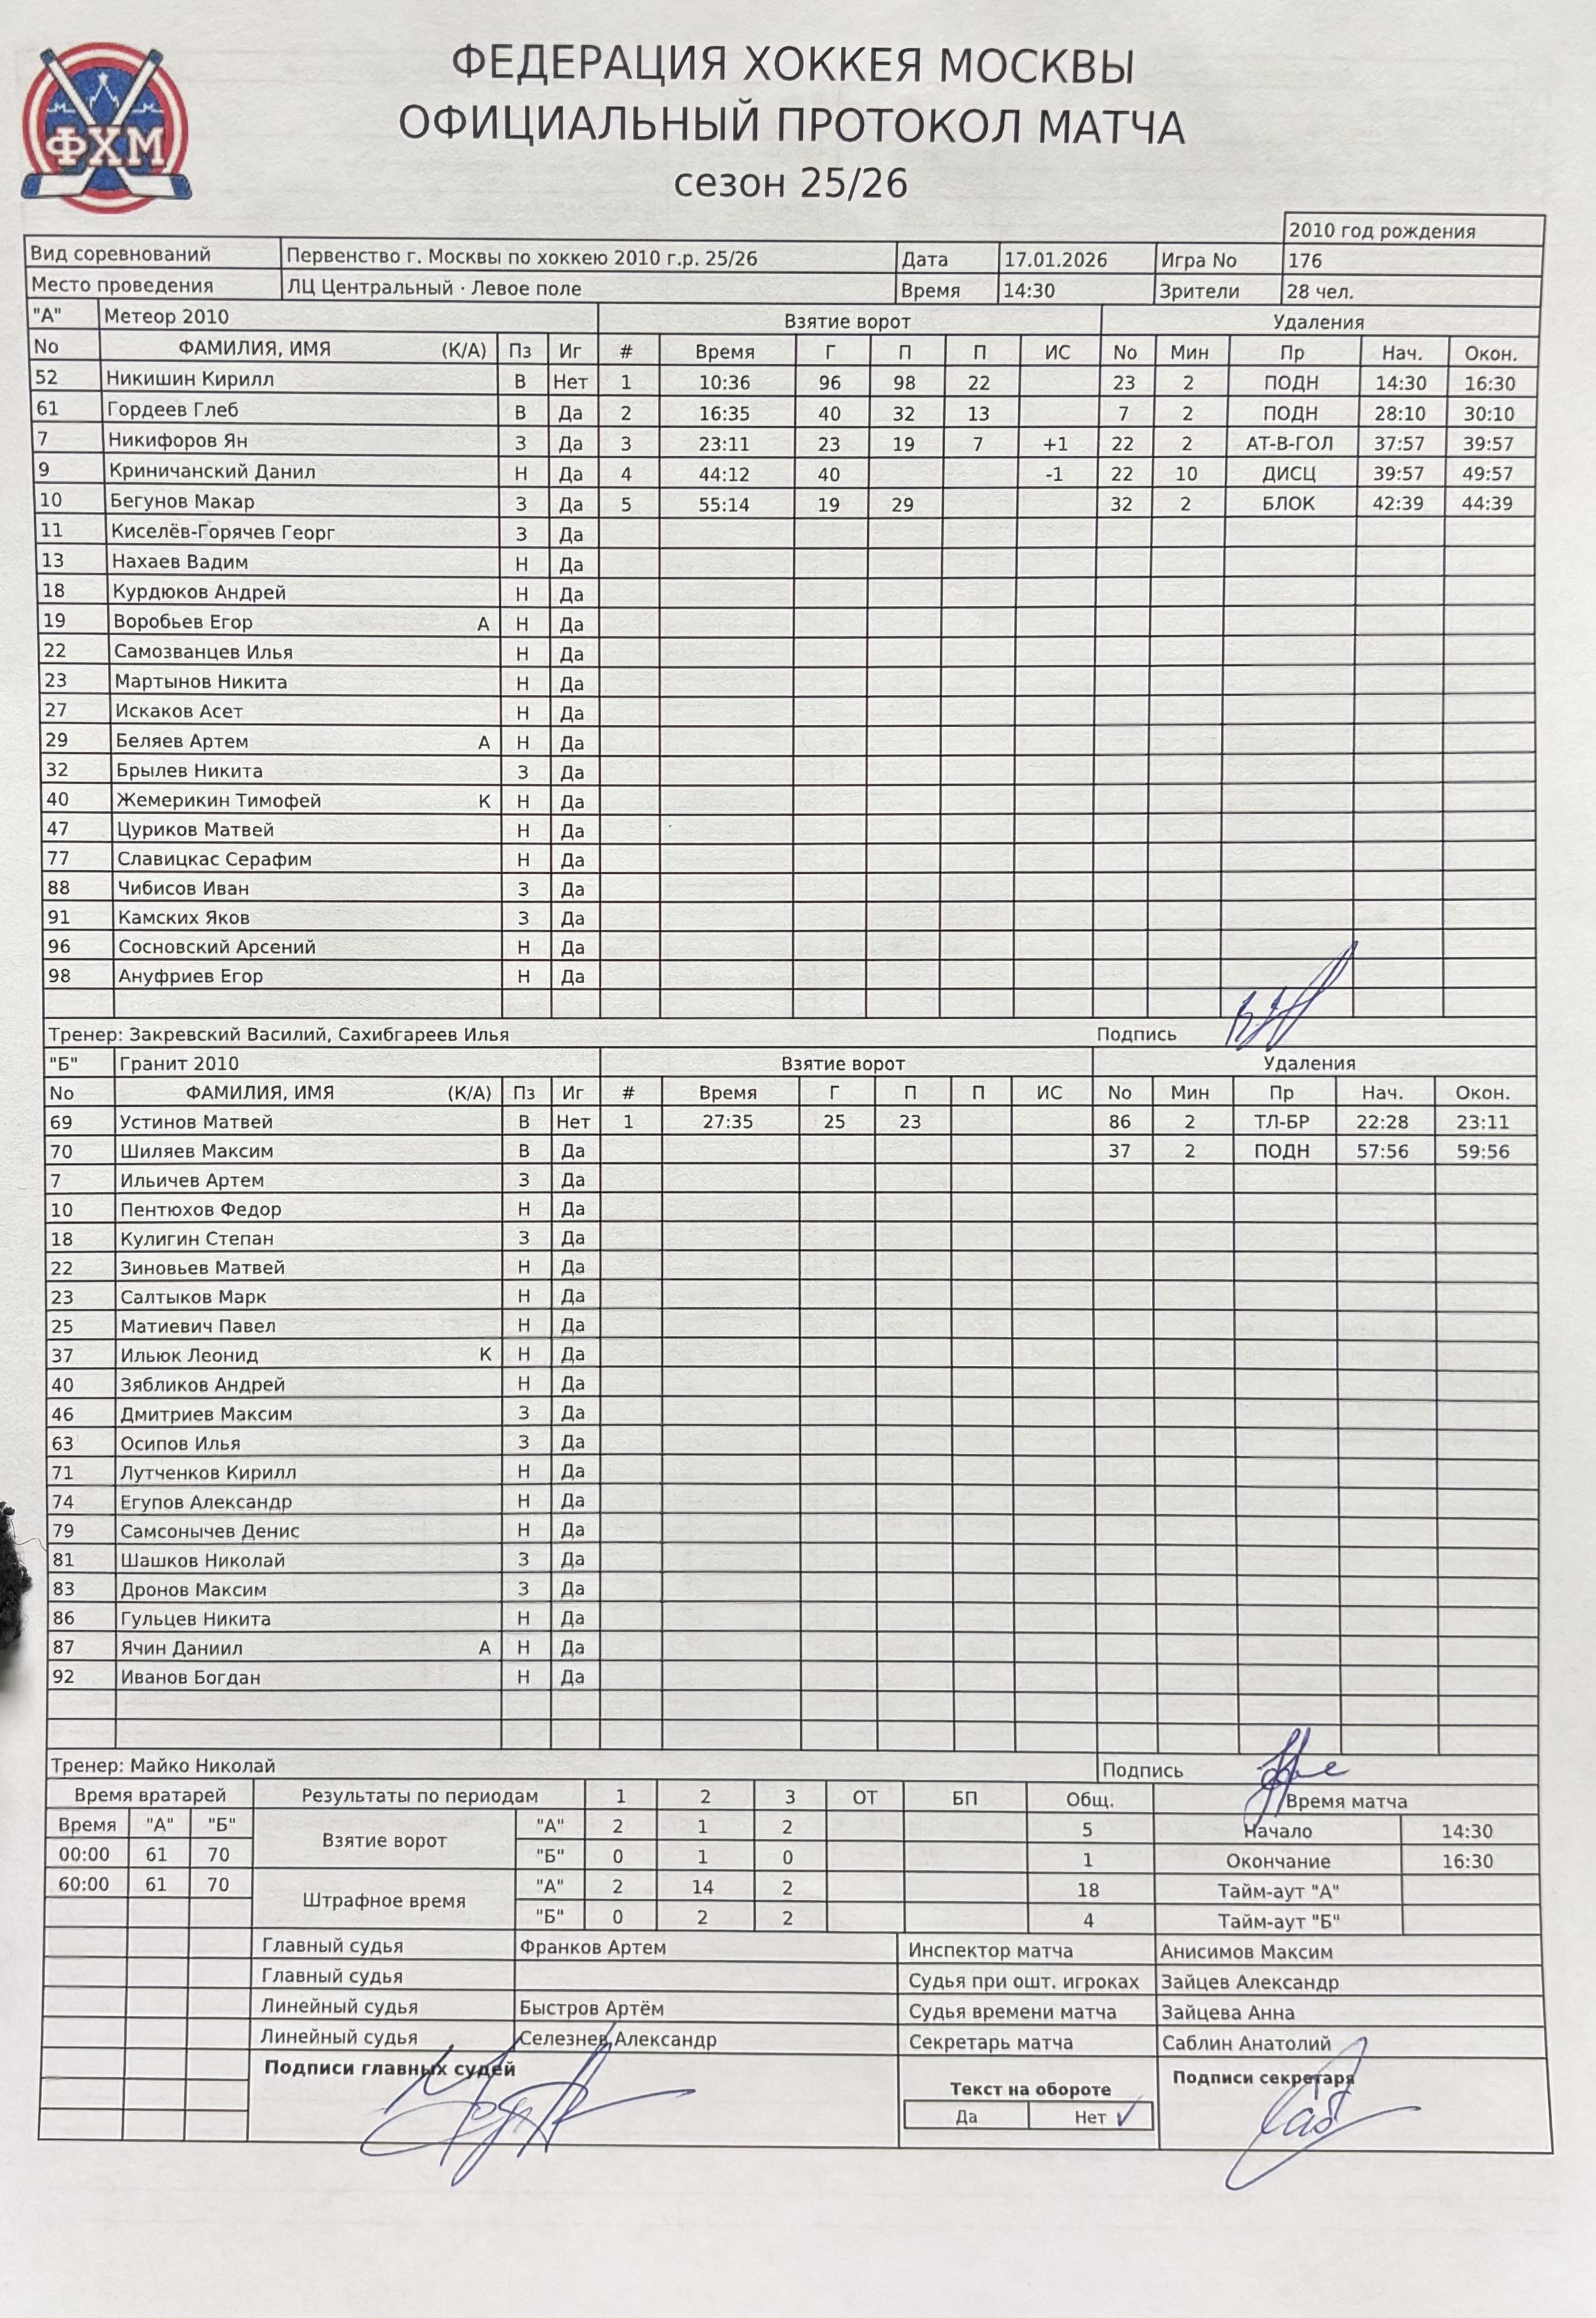 ФХМ
ФЕДЕРАЦИЯ ХОККЕЯ МОСКВЫ
ОФИЦИАЛЬНЫЙ ПРОТОКОЛ МАТЧА
сезон 25/26
2010 год рождения
Вид соревнований Первенство г. Москвы по хоккею 2010 г.р. 25/26 Дата 17.01.2026 Игра No 176
Место проведения ЛЦ Центральный · Левое поле Время 14:30 Зрители 28 чел.
"А" Метеор 2010 Взятие ворот Удаления
No ФАМИЛИЯ, ИМЯ (К/А) Пз Иг # Время Г П П ИС No Мин Пр Нач. Окон.
52 Никишин Кирилл В Нет 1 10:36 96 98 22 23 2 ПОДН 14:30 16:30
61 Гордеев Глеб В Да 2 16:35 40 32 13 7 2 ПОДН 28:10 30:10
7 Никифоров Ян З Да 3 23:11 23 19 7 +1 22 2 АТ-В-ГОЛ 37:57 39:57
9 Криничанский Данил Н Да 4 44:12 40 -1 22 10 ДИСЦ 39:57 49:57
10 Бегунов Макар З Да 5 55:14 19 29 32 2 БЛОК 42:39 44:39
11 Киселёв-Горячев Георг З Да
13 Нахаев Вадим Н Да
18 Курдюков Андрей Н Да
19 Воробьев Егор А Н Да
22 Самозванцев Илья Н Да
23 Мартынов Никита Н Да
27 Искаков Асет Н Да
29 Беляев Артем А Н Да
32 Брылев Никита З Да
40 Жемерикин Тимофей К Н Да
47 Цуриков Матвей Н Да
77 Славицкас Серафим Н Да
88 Чибисов Иван З Да
91 Камских Яков З Да
96 Сосновский Арсений Н Да
98 Ануфриев Егор Н Да
Тренер: Закревский Василий, Сахибгареев Илья Подпись
"Б" Гранит 2010 Взятие ворот Удаления
No ФАМИЛИЯ, ИМЯ (К/А) Пз Иг # Время Г П П ИС No Мин Пр Нач. Окон.
69 Устинов Матвей В Нет 1 27:35 25 23 86 2 ТЛ-БР 22:28 23:11
70 Шиляев Максим В Да 37 2 ПОДН 57:56 59:56
7 Ильичев Артем З Да
10 Пентюхов Федор Н Да
18 Кулигин Степан З Да
22 Зиновьев Матвей Н Да
23 Салтыков Марк Н Да
25 Матиевич Павел Н Да
37 Ильюк Леонид К Н Да
40 Зябликов Андрей Н Да
46 Дмитриев Максим З Да
63 Осипов Илья З Да
71 Лутченков Кирилл Н Да
74 Егупов Александр Н Да
79 Самсонычев Денис Н Да
81 Шашков Николай З Да
83 Дронов Максим З Да
86 Гульцев Никита Н Да
87 Ячин Даниил А Н Да
92 Иванов Богдан Н Да
Тренер: Майко Николай Подпись
Время вратарей Результаты по периодам 1 2 3 ОТ БП Общ. Время матча
Время "А" "Б" Взятие ворот "А" 2 1 2 5 Начало 14:30
00:00 61 70 "Б" 0 1 0 1 Окончание 16:30
60:00 61 70 Штрафное время "А" 2 14 2 18 Тайм-аут "А"
"Б" 0 2 2 4 Тайм-аут "Б"
Главный судья Франков Артем Инспектор матча Анисимов Максим
Главный судья Судья при ошт. игроках Зайцев Александр
Линейный судья Быстров Артём Судья времени матча Зайцева Анна
Линейный судья Селезнев Александр Секретарь матча Саблин Анатолий
Подписи главных судей Текст на обороте Подписи секретаря
Да Нет ✓